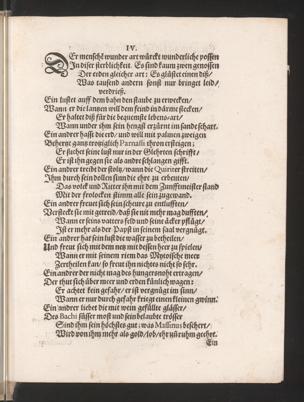 IV.
DEr menschẽ wunder art würckt wunderliche possen
In diser sterblichkeit. Es sind kaum zwen genossen
Der erden gleicher art: Es glüstet einen diß/
Was tausend andern sonst nur bringet leid/
verdrieß.
Ein lustet auff dem bahn den staube zu erwecken/
Wann er die lantzen will dem feind in därme stecken/
Er haltet diß für die bequemste lebens-art/
Wann under ihm sein hengst erzürnt im sande schart.
Ein andrer hasst die erd/ und will mit palmen zweigen
Beherzt gantz trotziglich Parnassi thron ersteigen;
Er suchet seine lust nur in der Gelehrten schrifft/
Er ist ihn gegen sie als andre schlangen gifft.
Ein andrer treibt der stoltz/ wann die Quiriner streiten/
Ihm durch sein dollen sinn die ehr zu erbeuten/
Das volck und Ritter ihn mit dem Zunfftmeister stand
Mit der frolocken stimm alle sein zugewand.
Ein andrer freuet sich sein scheuer zu entlufften/
Versteckt sie mit getreid/ daß sie nit mehr mag dufften/
Wann er seins vatters feld und seine äcker pflügt/
Ist er mehr als der Papst in seinem saal vergnügt.
Ein andrer hat sein lust die wasser zu betheilen/
Und freut sich mit dem netz mit dessen heer zu spielen/
Wann er mit seinem riem das Myrtoische meer
Zertheilen kan/ so freut ihn nichts nicht so sehr.
Ein andrer der nicht mag des hungers noht ertragen/
Der thut sich über meer und erden künlich wagen:
Er achtet kein gefahr/ er ist vergnügt im sinn/
Wann er nur durch gefahr kriegt einen kleinen gwünn.
Ein andrer liebet die mit wein gefüllte gläser/
Des Bachi süsser most und sein belaubte trösser
Sind ihm sein höchstes gut: was Massicus beschert/
Wird von ihm mehr als gold/ lob/ ehr/ und ruhm geehrt.
Ein